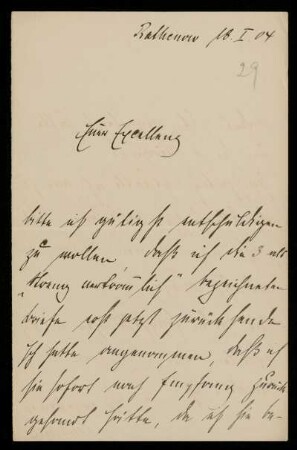 Rathenow 18. I 04
29
Euer Excellenz
bitte ich gütigst entschuldigen
zu wollen daß ich die 3 als
„streng vertraulich" bezeichneten
Briefe erst jetzt zurücksende
Ich hatte angenommen, daß ich
sie sofort nach Empfang zurück
gesandt hätte, da ich sie be-